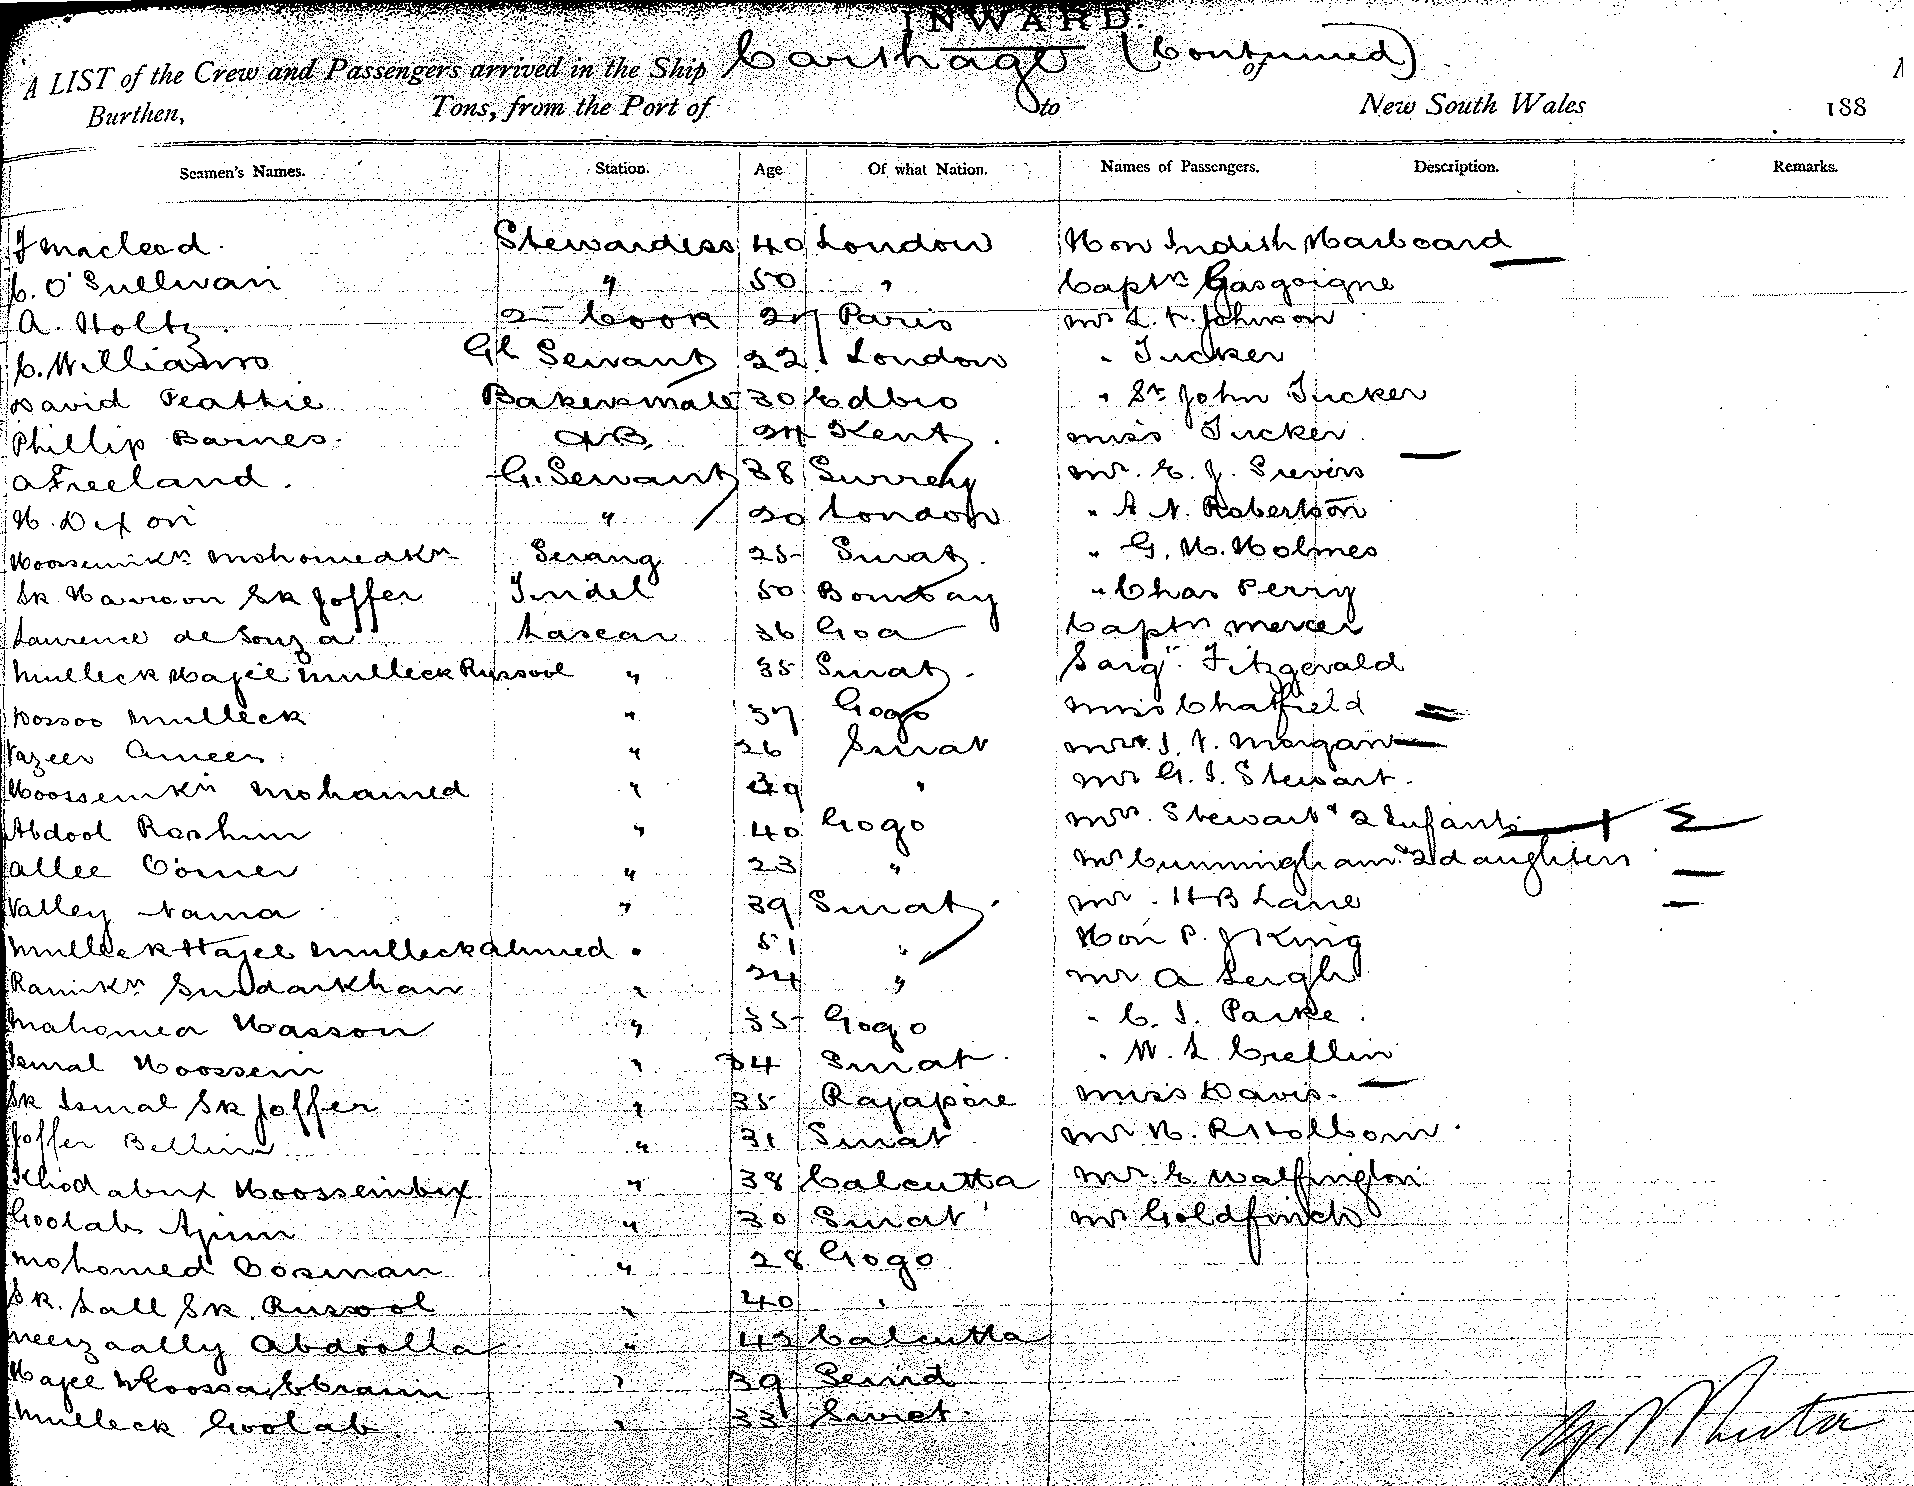 INWARD.
A LIST of the Crew and Passengers arrived in the Ship Carthage (Continued) of
Burthen, Tons, from the Port of to New South Wales 188
Seamen's Names. Station. Age Of what Nation. Names of Passengers. Description. Remarks.
J Macleod Stewardess 40 London Hon
C. O'Sullivan " 50 " Captn Gasgoigne
A. Holtz 2nd Cook 27 Paris Mr Johnson
C. Williams Gl Servant 22 London " Tucker
David Peattie Bakersmate 30 Edbro " St John Tucker
Phillip Barnes AB 24 Kent Miss Tucker
A Freeland. G. Servant 38 Surrey Mr. E. J.
H. Dixon " 20 London " A N. Robertson
Hoosseinkn Mohomedkn Serang 25 Surat " G. H. Holmes
Sk Sk Joffer Tindel 50 Bombay " Chas Perry
Laurence de Souza Lascar 36 Goa Captn Mercer
Mulleck Hajee Mulleck Russool " 35 Surat Fitzgerald
Dossoo Mulleck " 37 Gogo Miss Chatfield
Vazeer Ameer " 26 Surat Morgan
Hoosseinkn Mohamed " 39 " Mr G. S. Stewart
Abdool Rashim " 40 Gogo Mrs. Stewart & 2 Infants
Allee Oomer " 23 " Mr Cunningham & 2 daughters
Valley Nama " 39 Surat Mr. H B Lane
Mulleck Hajee Mulleck Ahmed " 51 " Hon P. J King
Ramikn Surdarkhan " 24 " Mr A Leigh
Mahomed Hasson " 35 Gogo " C. S. Parke
Ismal Hoossein " 34 Surat " W. L Crellin
Sk Ismal Sk Joffer " 35 Rajapore Miss Davis.
Joffer Bellim " 31 Surat Mr H. R Holborn
Khodabux Hoosseinbux " 38 Calcutta Mr. E Walfington
Goolab " 30 Surat Mr Goldfinch
Mohomed Oosman " 28 Gogo
Sk. Lall Sk. Russool " 40 "
Meerzaally Abdoolla " 43 Calcutta
Hajee Moossa Ebraim " 39 Scind
Mulleck Goolab " 33 Surat